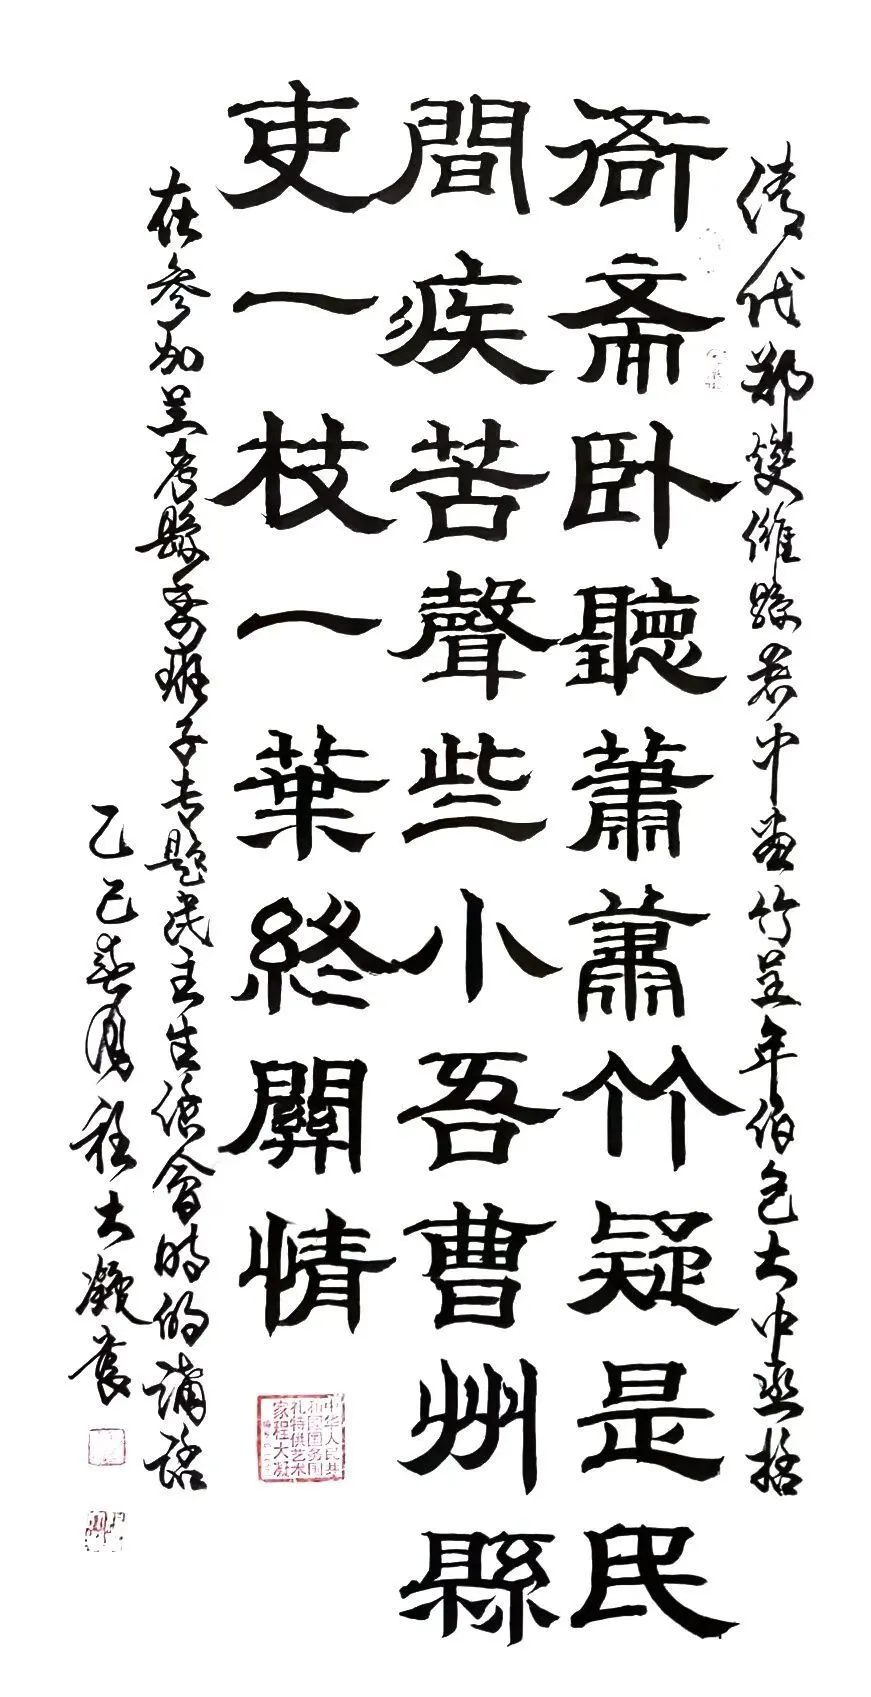 清代郑燮濰縣署中画竹呈年伯包大中丞括
衙斋卧聽蕭蕭竹疑是民
間疾苦聲些小吾曹州縣
吏一枝一葉終關情
中华人民共
和国国务国
礼特供艺术
家程大凝
在參加兰考縣委班子专题民主生活會时的诵
乙巳春月程大凝書